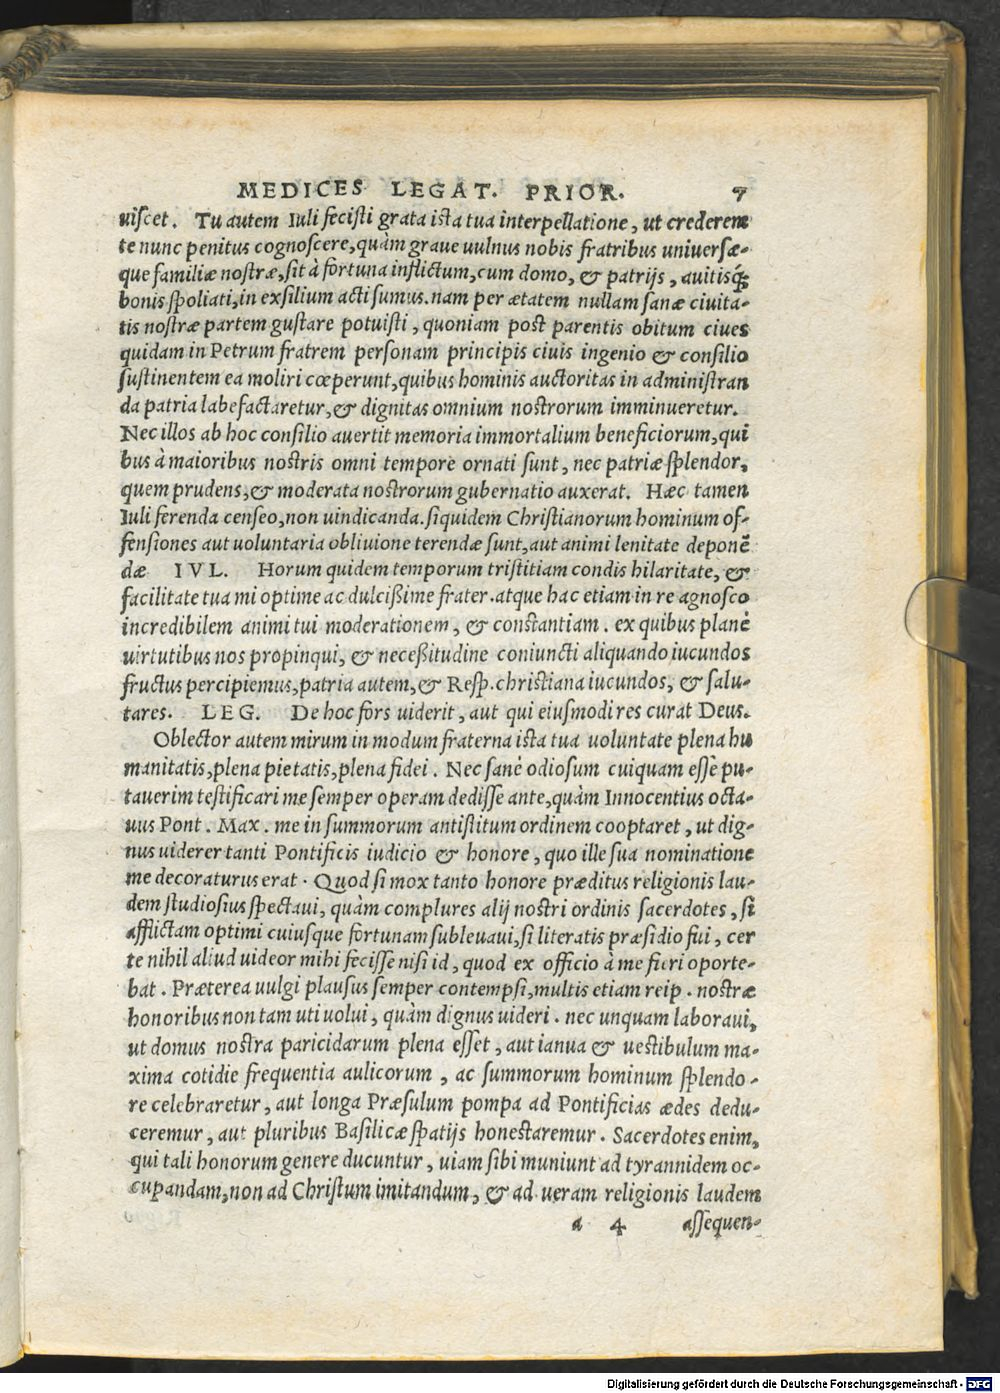 MEDICES LEGAT. PRIOR. 7
uiscet. Tu autem Iuli fecisti grata ista tua interpellatione, ut crederem
te nunc penitus cognoscere, quàm graue uulnus nobis fratribus uniuersæ-
que familiæ nostræ, sit à fortuna inflictum, cum domo, & patrijs, auitisq́;
bonis spoliati, in exsilium acti sumus. nam per ætatem nullam sanæ ciuita-
tis nostræ partem gustare potuisti, quoniam post parentis obitum ciues
quidam in Petrum fratrem personam principis ciuis ingenio & consilio
sustinentem ea moliri cœperunt, quibus hominis auctoritas in administran
da patria labefactaretur, & dignitas omnium nostrorum imminueretur.
Nec illos ab hoc consilio auertit memoria immortalium beneficiorum, qui
bus à maioribus nostris omni tempore ornati sunt, nec patriæ splendor,
quem prudens, & moderata nostrorum gubernatio auxerat. Hæc tamen
Iuli ferenda censeo, non uindicanda. siquidem Christianorum hominum of-
fensiones aut uoluntaria obliuione terendæ sunt, aut animi lenitate deponẽ
dæ IVL. Horum quidem temporum tristitiam condis hilaritate, &
facilitate tua mi optime ac dulcißime frater. atque hac etiam in re agnosco
incredibilem animi tui moderationem, & constantiam. ex quibus planè
uirtutibus nos propinqui, & neceßitudine coniuncti aliquando iucundos
fructus percipiemus, patria autem, & Resp. christiana iucundos, & salu-
tares. LEG. De hoc fors uiderit, aut qui eiusmodi res curat Deus.
Oblector autem mirum in modum fraterna ista tua uoluntate plena hu
manitatis, plena pietatis, plena fidei. Nec sanè odiosum cuiquam esse pu-
tauerim testificari me semper operam dedisse ante, quàm Innocentius octa-
uus Pont. Max. me in summorum antistitum ordinem cooptaret, ut dig-
nus uiderer tanti Pontificis iudicio & honore, quo ille sua nominatione
me decoraturus erat. Quod si mox tanto honore præditus religionis lau-
dem studiosius spectaui, quàm complures alij nostri ordinis sacerdotes, si
afflictam optimi cuiusque fortunam subleuaui, si literatis præsidio fui, cer
te nihil aliud uideor mihi fecisse nisi id, quod ex officio à me fieri oporte-
bat. Præterea uulgi plausus semper contempsi, multis etiam reip. nostræ
honoribus non tam uti uolui, quàm dignus uideri. nec unquam laboraui,
ut domus nostra paricidarum plena esset, aut ianua & uestibulum ma-
xima cotidie frequentia aulicorum, ac summorum hominum splendo-
re celebraretur, aut longa Præsulum pompa ad Pontificias ædes dedu-
ceremur, aut pluribus Basilicæ spatijs honestaremur. Sacerdotes enim,
qui tali honorum genere ducuntur, uiam sibi muniunt ad tyrannidem oc-
cupandam, non ad Christum imitandum, & ad ueram religionis laudem
a 4 assequen-
Digitalisierung gefördert durch die Deutsche Forschungsgemeinschaft - DFG